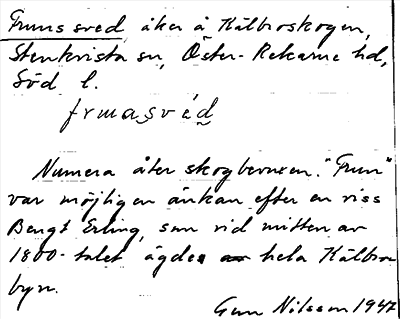 Fruns sved, åker å Kälbroskogen,
Stenkvista sn, Öster-Rekarne hd,
Söd l.
frunasvéd
Numera åter skogbevuxen. "Frun"
var möjligen änkan efter en viss
Bengt Erling, som vid mitten av
1800-talet ägde hela Kälbro
byn.
Gun Nilsson 1947